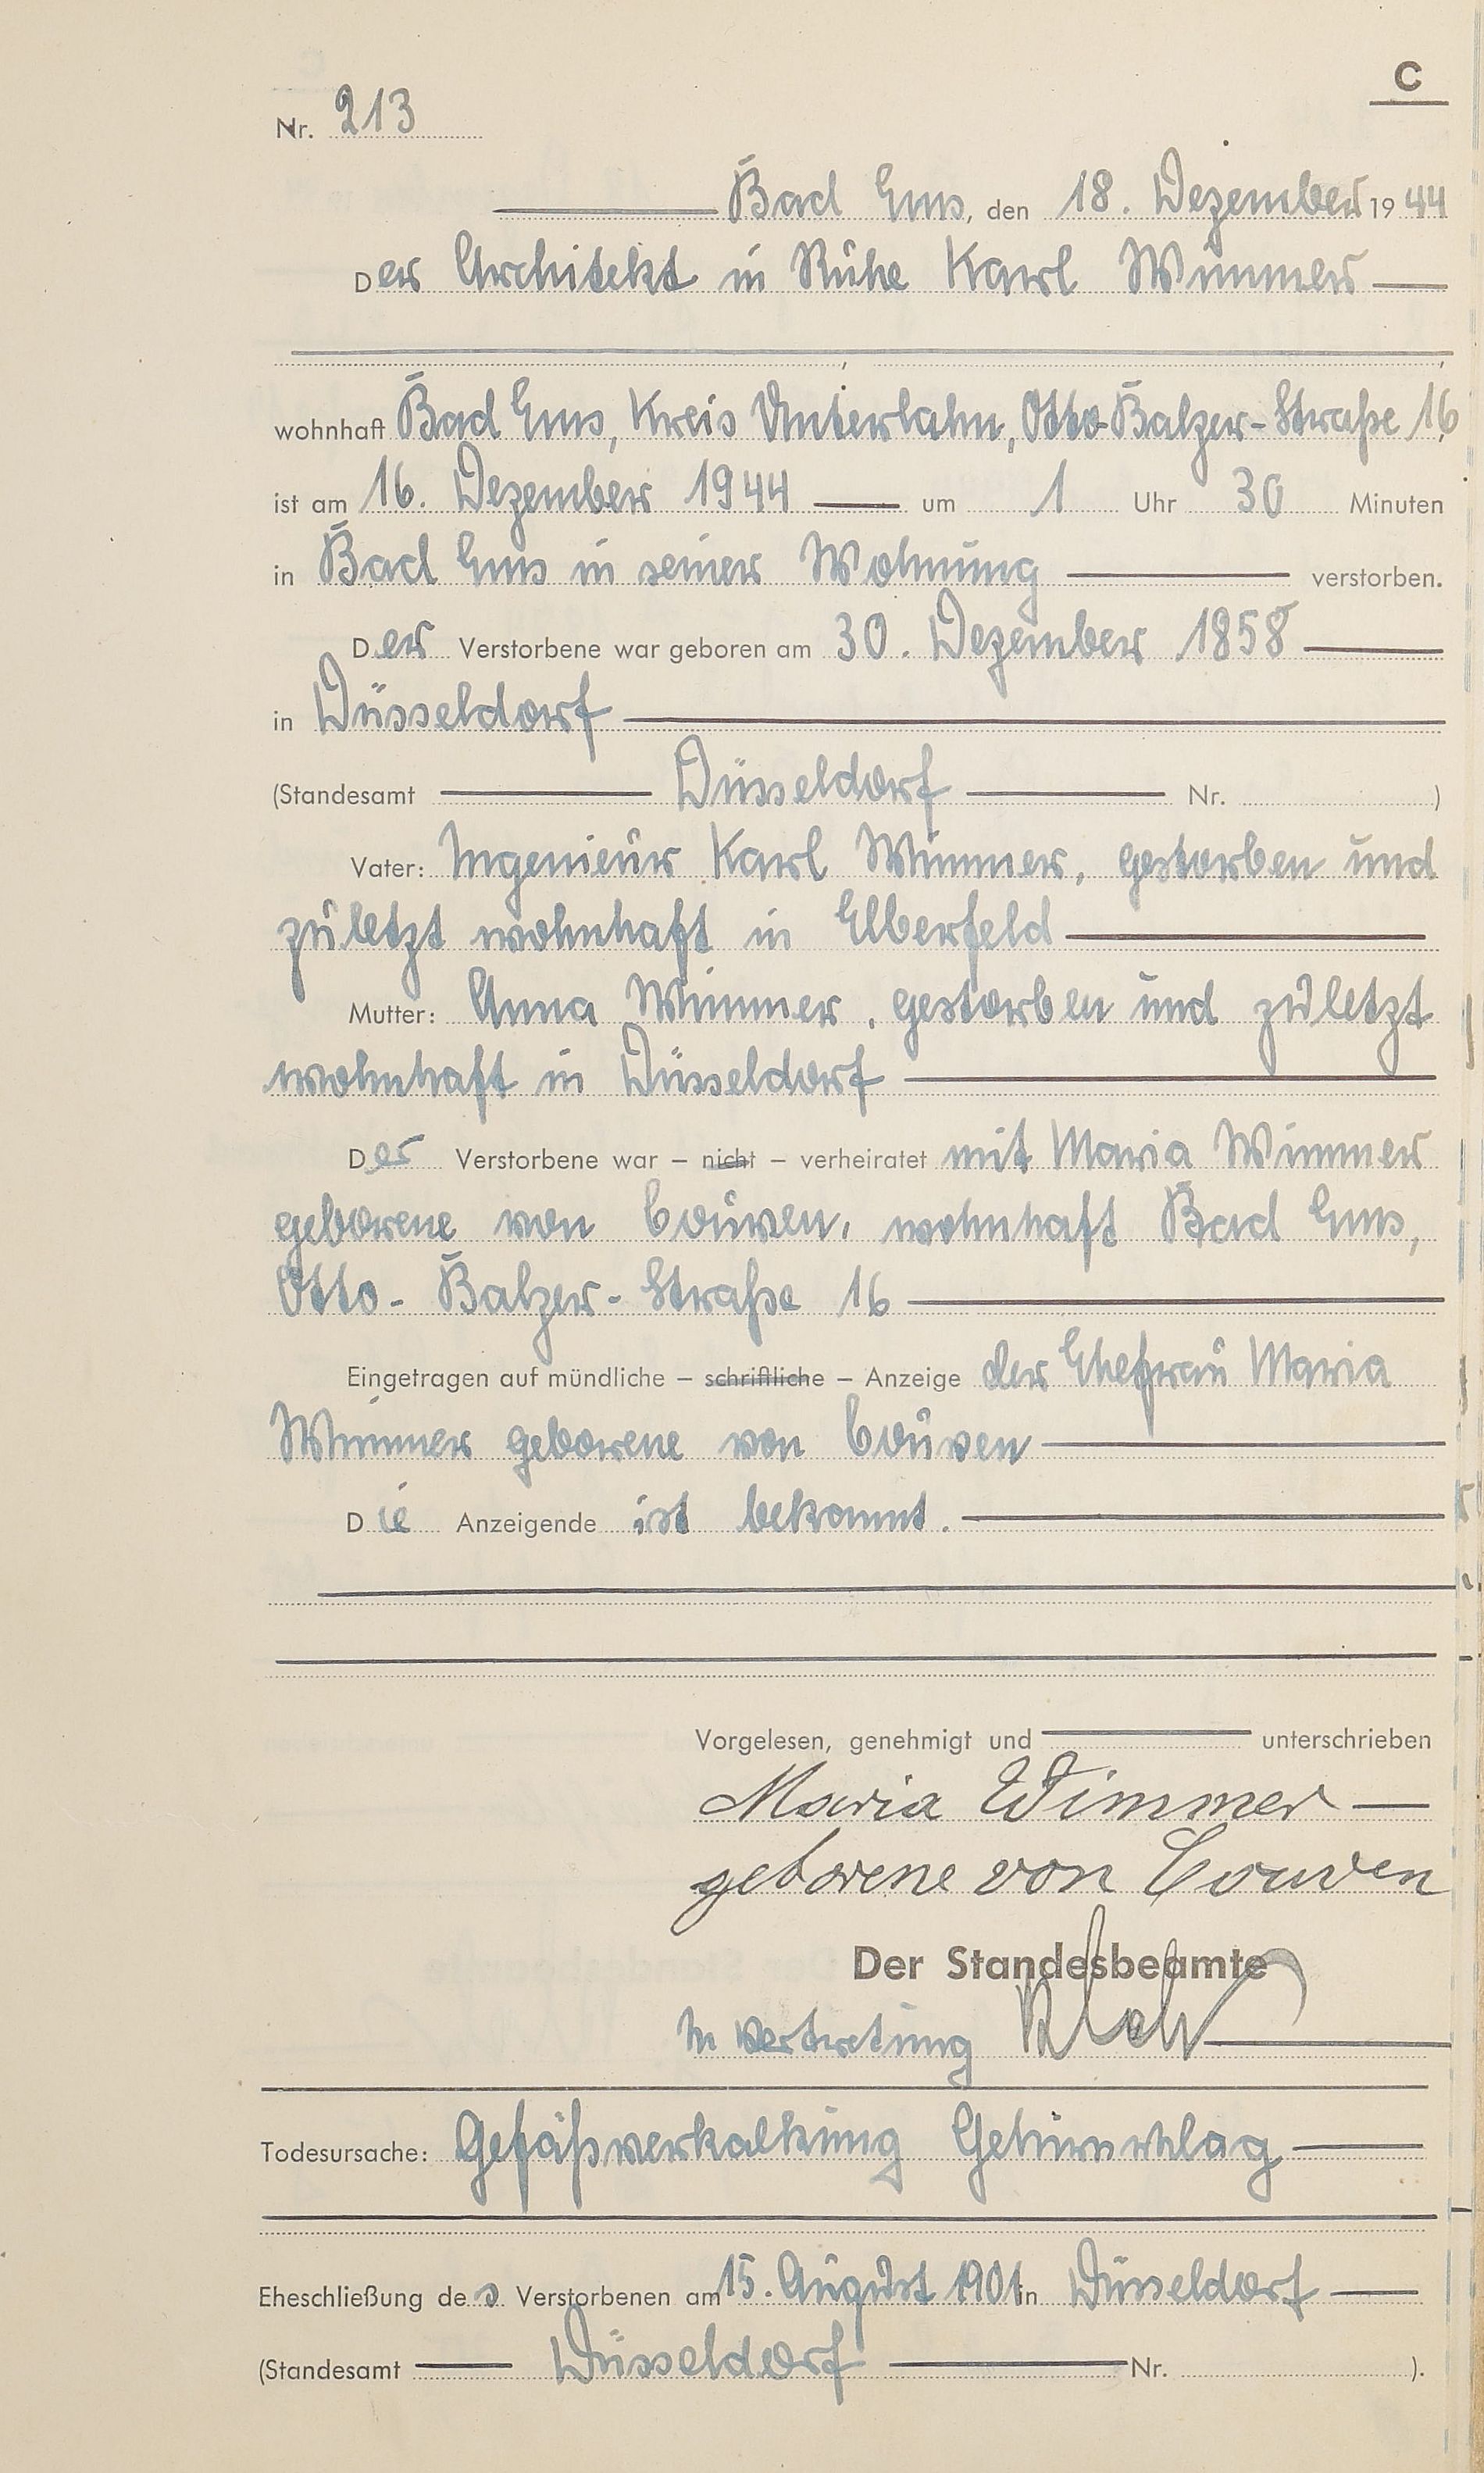 C
Nr. 213
Bad Ems, den 18. Dezember 1944
Der Architekt in Ruhe Karl Wimmer
wohnhaft Bad Ems, Kreis Unterlahn, Otto-Balzer-Straße 16,
ist am 16. Dezember 1944 um 1 Uhr 30 Minuten
in Bad Ems in seiner Wohnung verstorben.
Der Verstorbene war geboren am 30. Dezember 1858
in Düsseldorf
(Standesamt Düsseldorf Nr. )
Vater: Ingenieur Karl Wimmer, gestorben und
zuletzt wohnhaft in Elberfeld
Mutter: Anna Wimmer, gestorben und zuletzt
wohnhaft in Düsseldorf
Der Verstorbene war – nicht – verheiratet mit Maria Wimmer
geborene von Couwen, wohnhaft Bad Ems,
Otto-Balzer-Straße 16
Eingetragen auf mündliche – schriftliche – Anzeige der Ehefrau Maria
Wimmer geborene von Couwen
Die Anzeigende ist bekannt.
Vorgelesen, genehmigt und unterschrieben
Maria Wimmer
geborene von Couwen
Der Standesbeamte
In Vertretung
Todesursache: Gefäßverkalkung Gehirnschlag
Eheschließung des Verstorbenen am 15. August 1901 in Düsseldorf
(Standesamt Düsseldorf Nr. ).